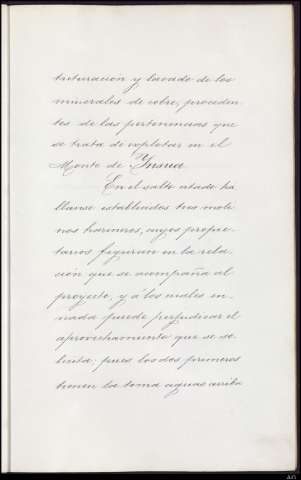 trituración y lavado de los
minerales de cobre, proceden
tes de las pertenencias que
se trata de explotar en el
Monte de Ynsua.
En el salto citado ha
llanse establecidos tres moli
nos harineros, cuyos propie-
tarios figuran en la rela-
ción que se acompaña al
proyecto, y á los cuales en
nada puede perjudicar el
aprovechamiento que se so-
licita; pues los dos primeros
tienen la toma aguas arriba